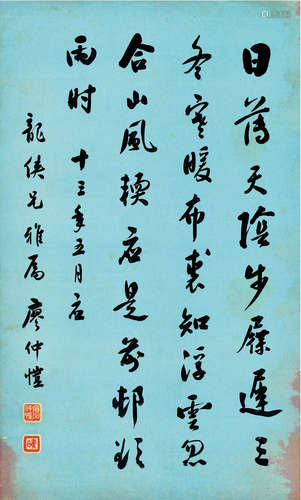 日薄天陰步屧遲三
冬寒暖布裘知浮雲忽
合山風換应是前邨欲
雨时 十三年五月应
龍俠兄雅属 廖仲愷